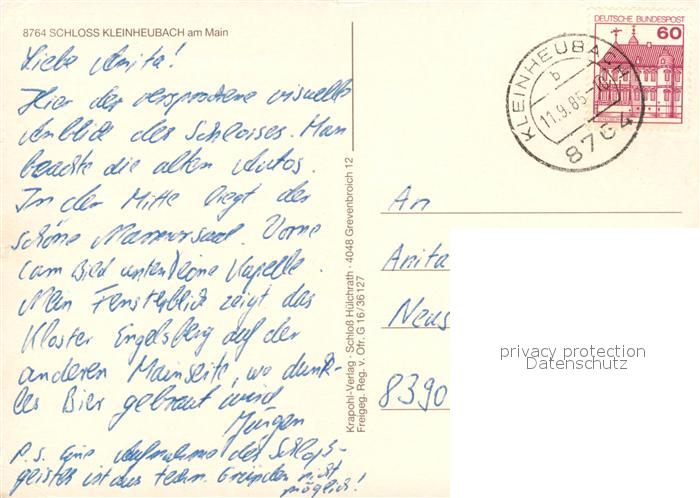 8764 SCHLOSS KLEINHEUBACH am Main
Liebe Anita!
Hier der versprochene visuelle
Anblick des Schlosses. Man
beachte die alten Autos.
In der Mitte liegt der
schöne Marmorsaal. Vorne
(am Bild unten) eine Kapelle.
Mein Fensterblick zeigt das
Kloster Engelsberg auf der
anderen Mainseite, wo dunk-
les Bier gebraut wird
Jürgen
P.S. Eine Aufnahme des Schloß-
geistes ist aus techn. Gründen nicht
möglich!
Krapohl-Verlag · Schloß Hülchrath · 4048 Grevenbroich 12
Freigeg. Reg. v. Ofr. G 16/36127
DEUTSCHE BUNDESPOST
60
KLEINHEUBACH
b
11.9.85
8764
An
Anita
Neus
8390
privacy protection
Datenschutz